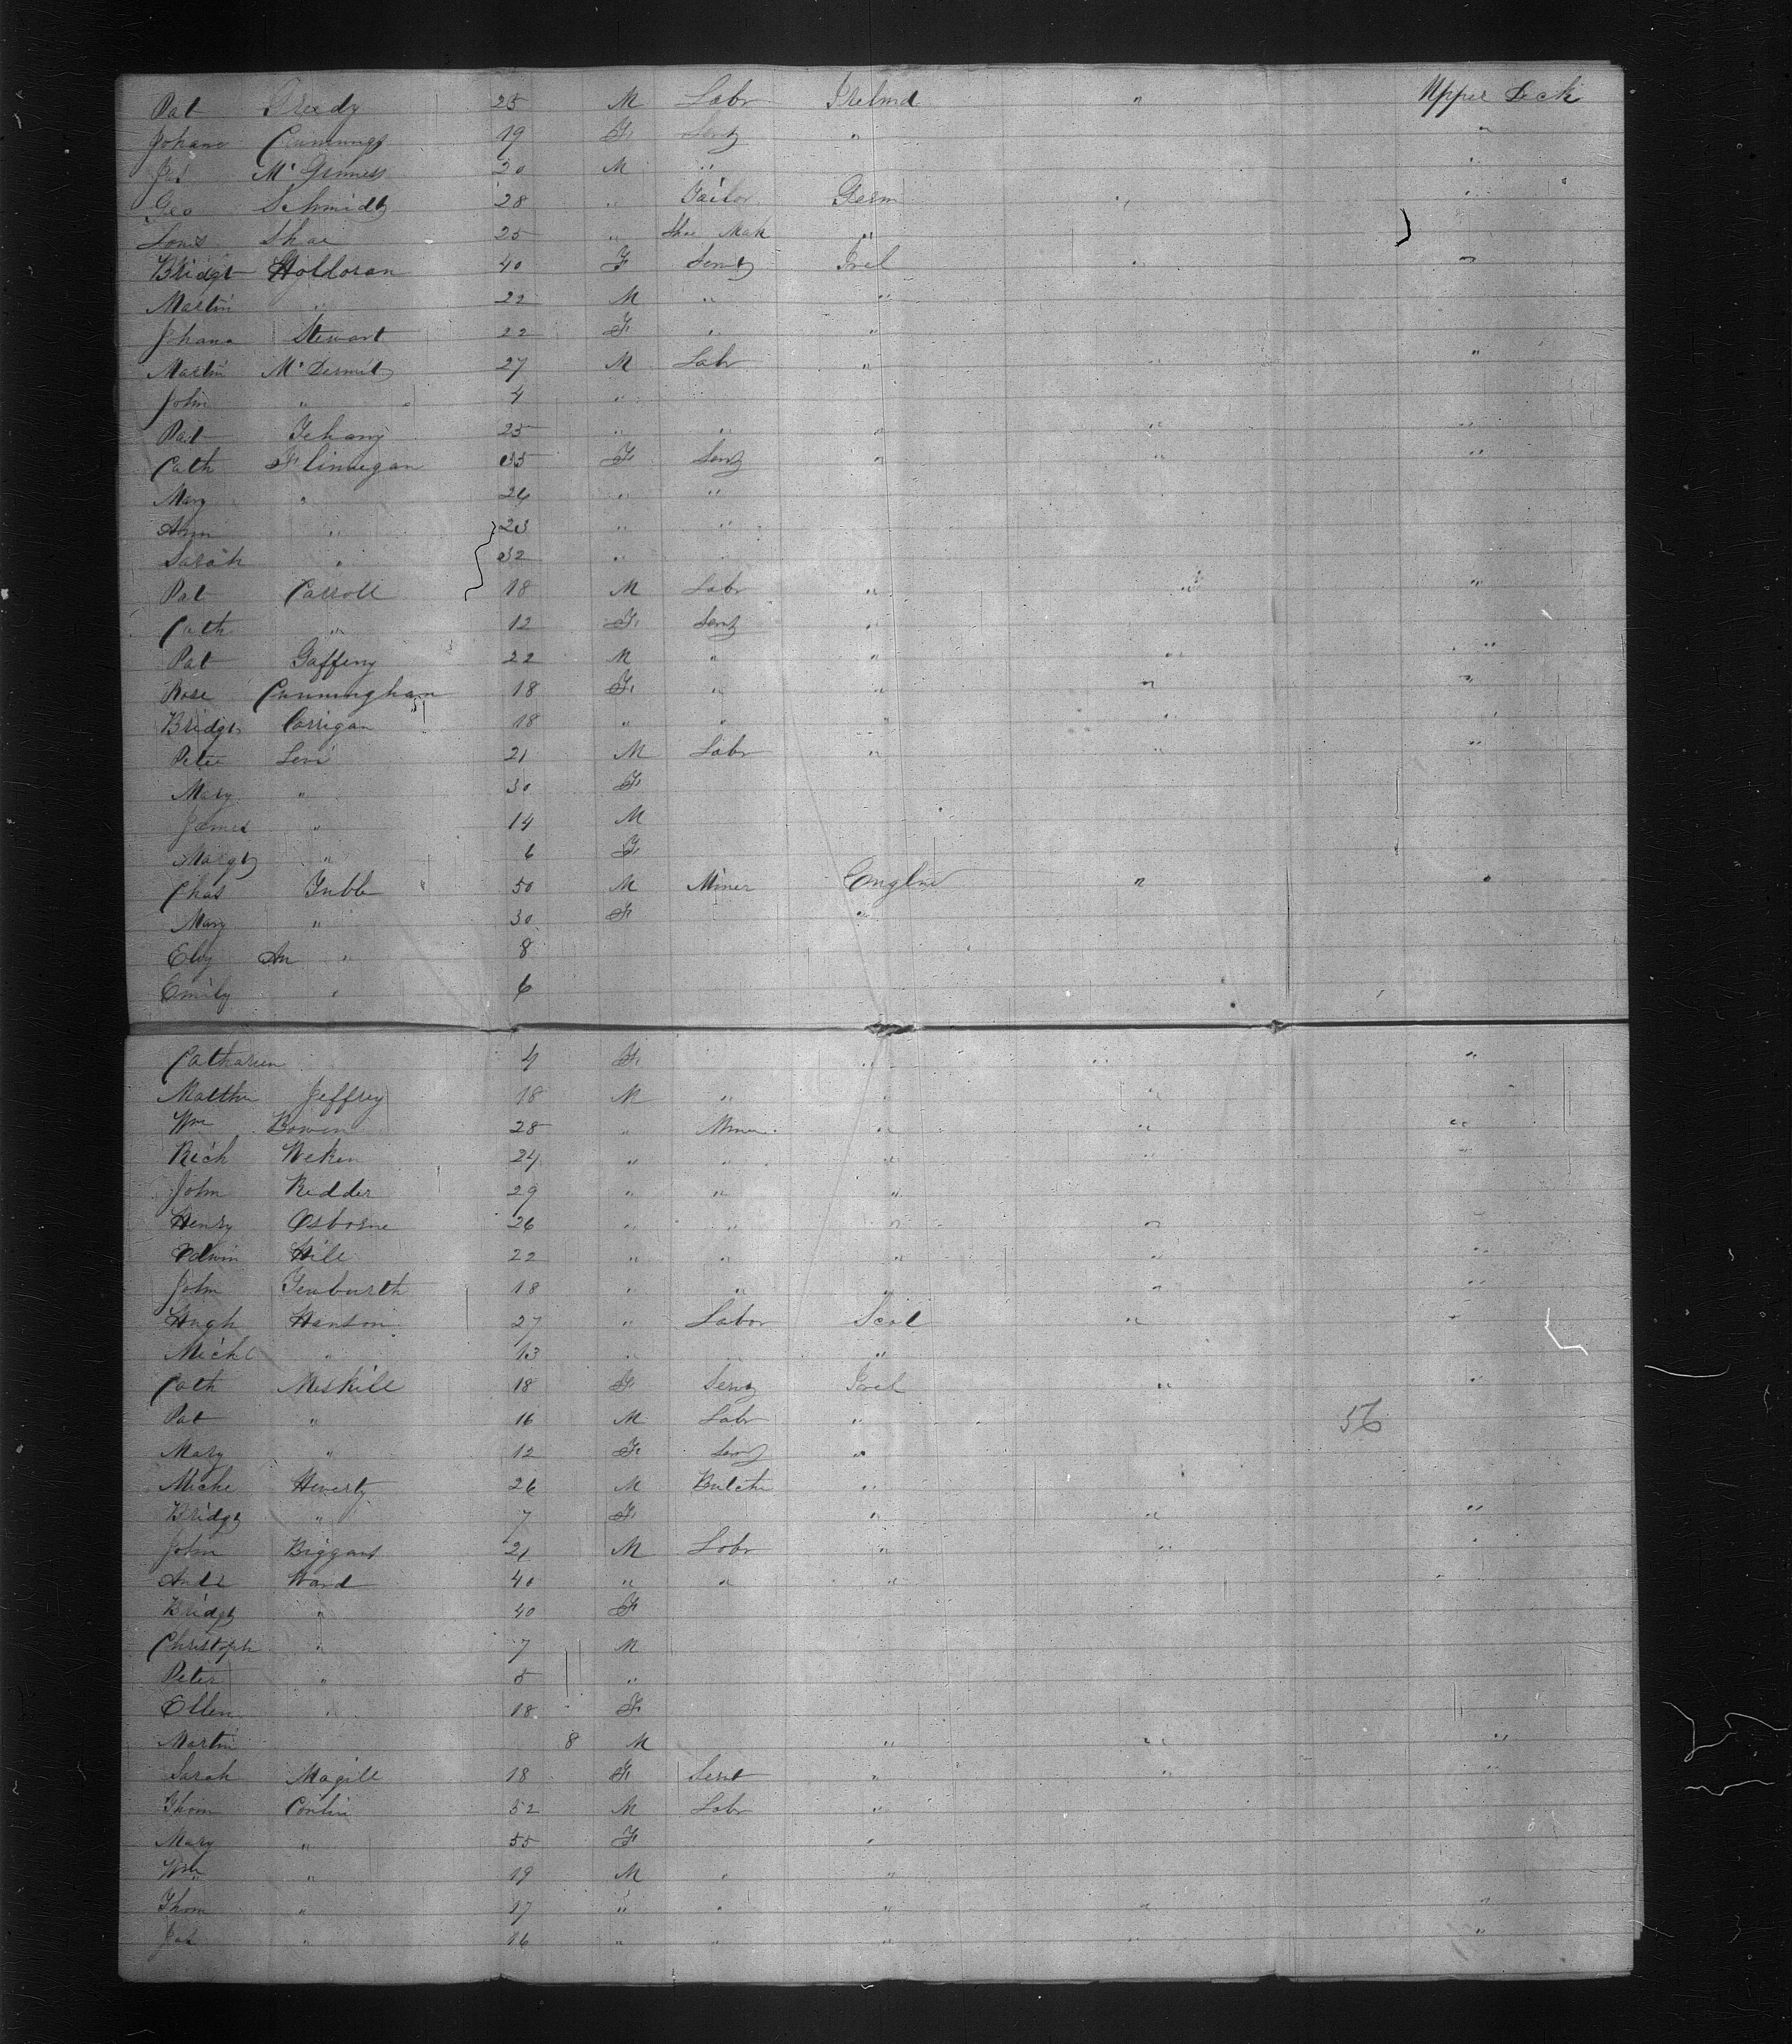 Pat Gready 25 M Labr Irelnd " Upper Deck
Johana Cummings 19 F. Servt " "
Jas McGinness 20 M " "
Geo Schmidt 28 " Tailor Germ " "
Louis Shae 25 " Shoe Mak "
Bridgt Holloran 40 F Servt Irel " "
Martin " 22 M " "
Johana Stewart 22 F. " "
Martin McDermit 27 M Labr " " "
John " 4 "
Pat 25 " " " " "
Cath Flinnegan 35 F. Servt " " "
Mary " 26 " "
Ann " 23 " "
Sarah " 32 " "
Pat Carroll 18 M Labr " " "
Cath " 12 F. Servt "
Pat Gaffeny 22 M " " " "
Rose Cunningham 18 F. " " " "
Bridgt Corrigan 18 " " " " "
Peter Levi 21 M Labr " " "
Mary " 30 F
James " 14 M
Margt " 6 F.
Chas Tubb 50 M Miner Englnd " "
Mary " 30 F "
Eliz An " 8
Emily " 6
Catharien 4 F. " " "
Matthw Jeffrey 18 M " " " "
Wm Bowen 28 " Miner " " "
Rich 24 " " " " "
John Redder 29 " " "
Henry Osborne 26 " " " " "
Edwin Hill 22 " " " " "
John 18 " " " " "
Hugh Hanson 27 " Labor Scot " "
Michl " 13 " "
Cath Meskill 18 F. Servt Irel " "
Pat " 16 M Labr " 56
Mary " 12 F. Servt "
Miche Heverty 26 M Butche "
Bridgt " 7 F. " " "
John Biggart 21 M Labr " " "
Ward 40 " " " "
Bridgt " 40 F
Christoph " 7 M
Peter " 5 "
Ellen " 18 F
Martin 8 M " " "
Sarah Magill 18 F. Servt " " "
Thom Conlin 52 M Labr "
Mary " 55 F "
Wm " 19 M " "
Thom " 17 " " " " "
Jas " 16 " " " " "